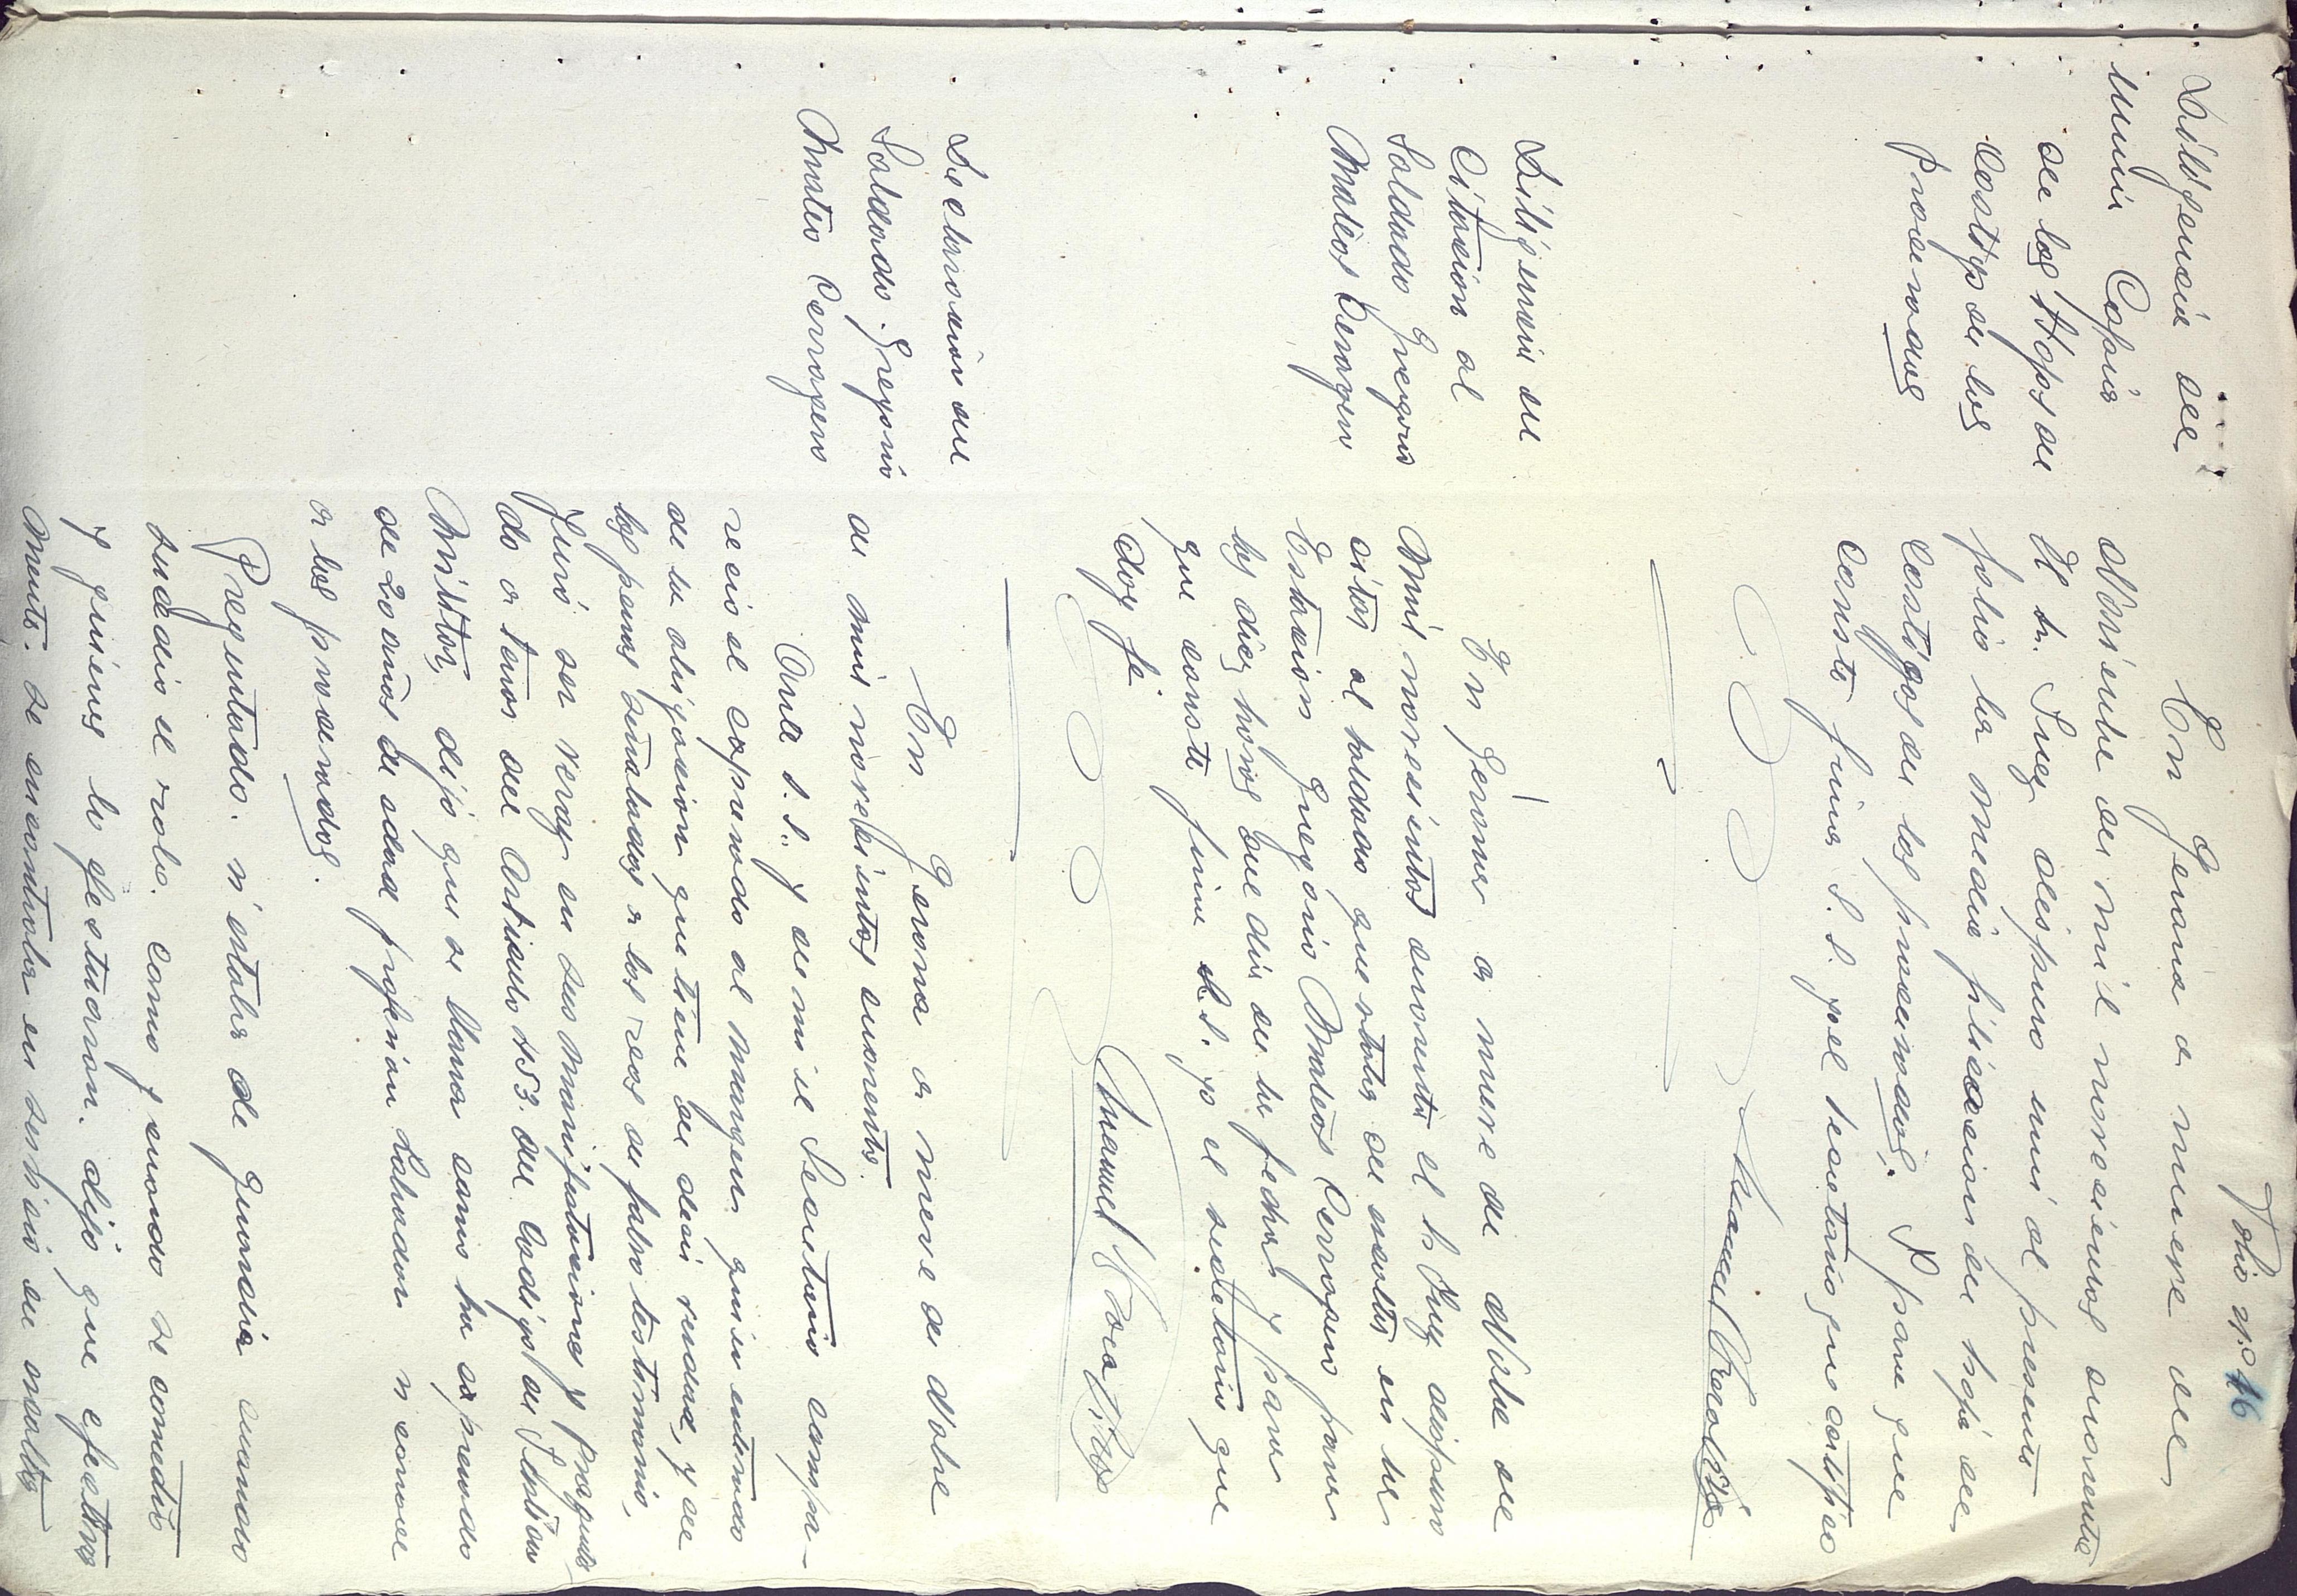 Folio nº 16
Diligencia de
unir Copia
de las Hojas de
Castigo de los
procesados
En Gerona a nueve de
Octubre de mil novecientos cuarenta
El Sr. Juez dispuso unir al presente
folio la media filiacion de hoja de
Castigos de los procesados. Y para que
conste firma S.S. y el secretario que certifico
Manuel
Diligencia de
Citacion al
Soldado Gregorio
Mateos Cerrajero
En Gerona a nueve de Octubre de
Mil novecientos cuarenta el Sr Juez dispuso
citar al soldado que estaba de escolta en la
Estacion Gregorio Mateos Cerrajero para
las diez horas del dia de la fecha y para
que conste firma S.S. yo el secretario que
doy fe
Manuel
Declaracion del
Soldado. Gregorio
Mateo Cerrajero
En Gerona a nueve de Octubre
de mil novecientos cuarenta.
Ante S.S. y de mi el Secretario compa-
recio el expresado al margen quien enterado
de la obligacion que tiene de decir verdad, y de
las penas señaladas a los reos de falso testimonio,
Juró ser veraz en sus manifestaciones y pregunta
do a tenor del Articulo 453 del Codigo de Justicia
Militar, dijo que se llama como ha expresado
de 20 años de edad profesion Labrador y conoce
a los procesados.
Preguntado. si estaba de guardia cuando
sucedio el robo. como y cuando se cometio
y quienes lo efectuaron. dijo que efectiva
mente. se encontraba en servicio de escolta